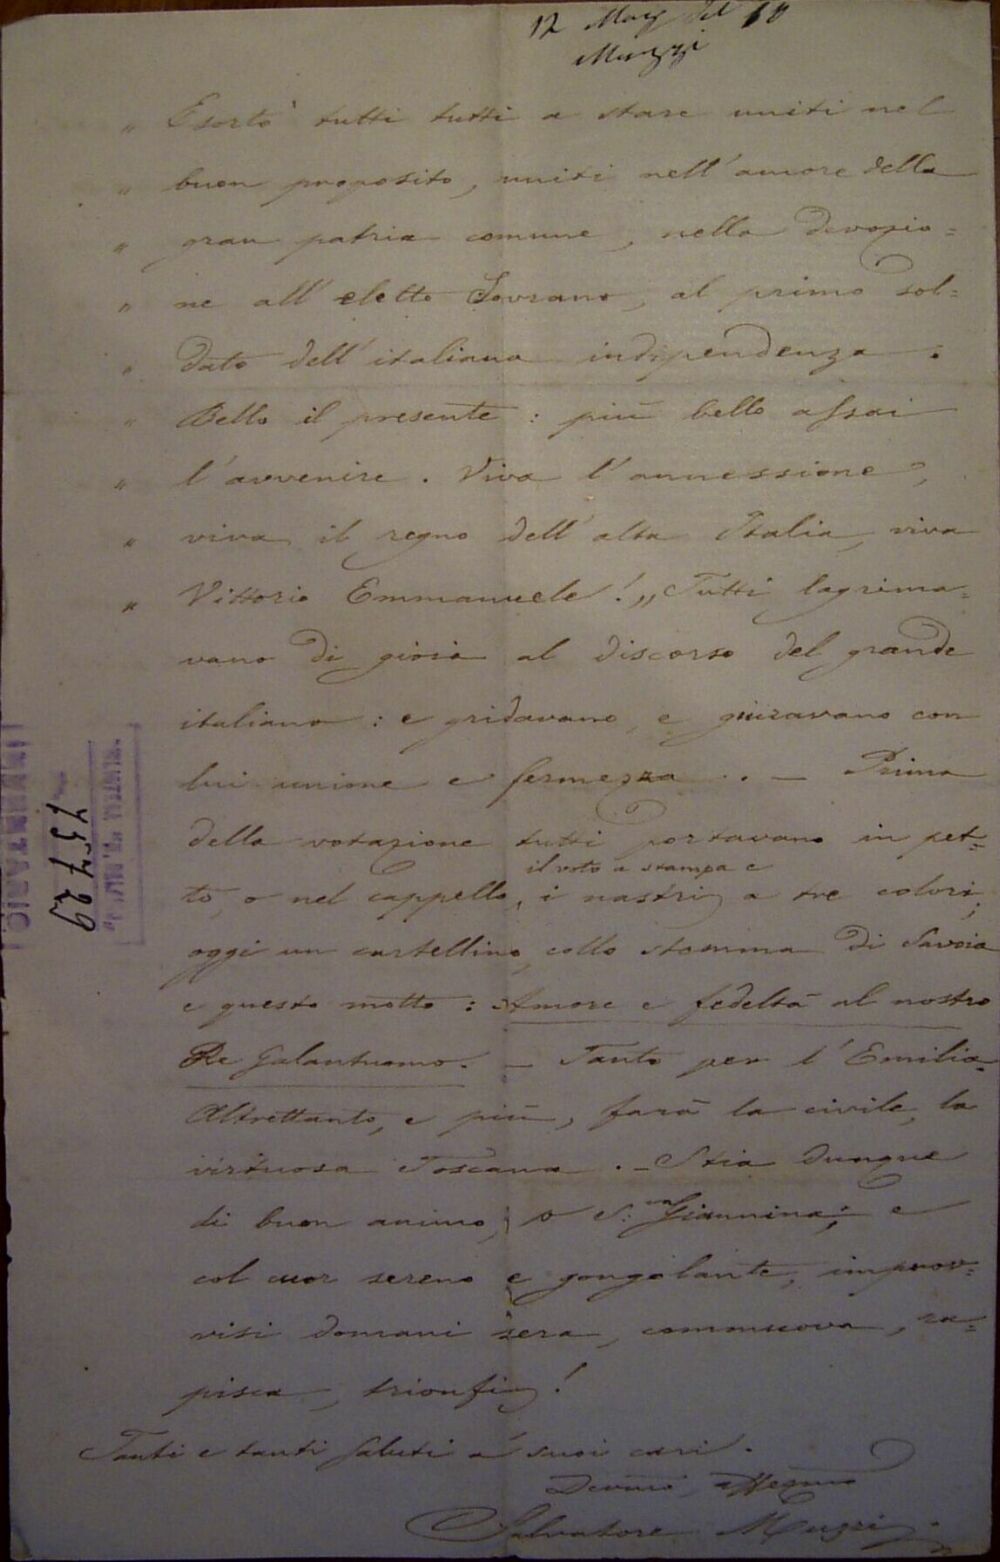 12 Marz
Muzzi
„ Esortò tutti tutti a stare uniti nel
„ buon proposito, uniti nell'amore della
„ gran patria comune, nella devozio=
„ ne all'eletto Sovrano, al primo sol=
„ dato dell'italiana indipendenza.
„ Bello il presente: più bello assai
„ l'avvenire. Viva l'annessione,
„ viva il regno dell'alta Italia, viva
„ Vittorio Emmanuele!„ Tutti lagrima=
vano di gioia al discorso del grande
italiano: e gridavano, e giuravano con
lui unione e fermezza. — Prima
della votazione tutti portavano in pet=
il voto a stampa e
to, o nel cappello, i nastri a tre colori;
oggi un cartellino collo stemma di Savoia
e questo motto: Amore e fedeltà al nostro
Re Galantuomo. — Tanto per l'Emilia.
Altrettanto, e più, farà la civile, la
virtuosa Toscana. — Stia dunque
di buon animo, o S.ra Giannina; e
col cuor sereno e gongolante, improv=
visi domani sera, commuova, ra=
pisca, trionfi!
Tanti e tanti saluti a' suoi cari.
Devmo, affezmo
Salvatore Muzzi
INVENTARIO
75729